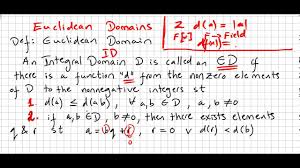 Euclidean Domains
Z d(a) = |a|
F[x] F → Field
Def: Euclidean Domain
ID
An Integral Domain D is called an ED if
there is a function "d" from the nonzero elements
of D to the nonnegative integers st
1. d(a) ≤ d(ab), ∀ a,b ∈ D, a,b ≠ 0
2. if a,b ∈ D, b ≠ 0, then there exists elements
q & r st a = bq + r, r = 0 ∨ d(r) < d(b)
0